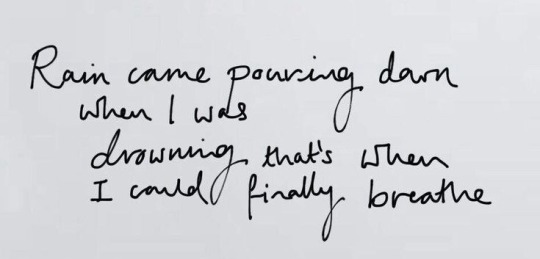 Rain came pouring down
when I was
drowning that's when
I could finally breathe